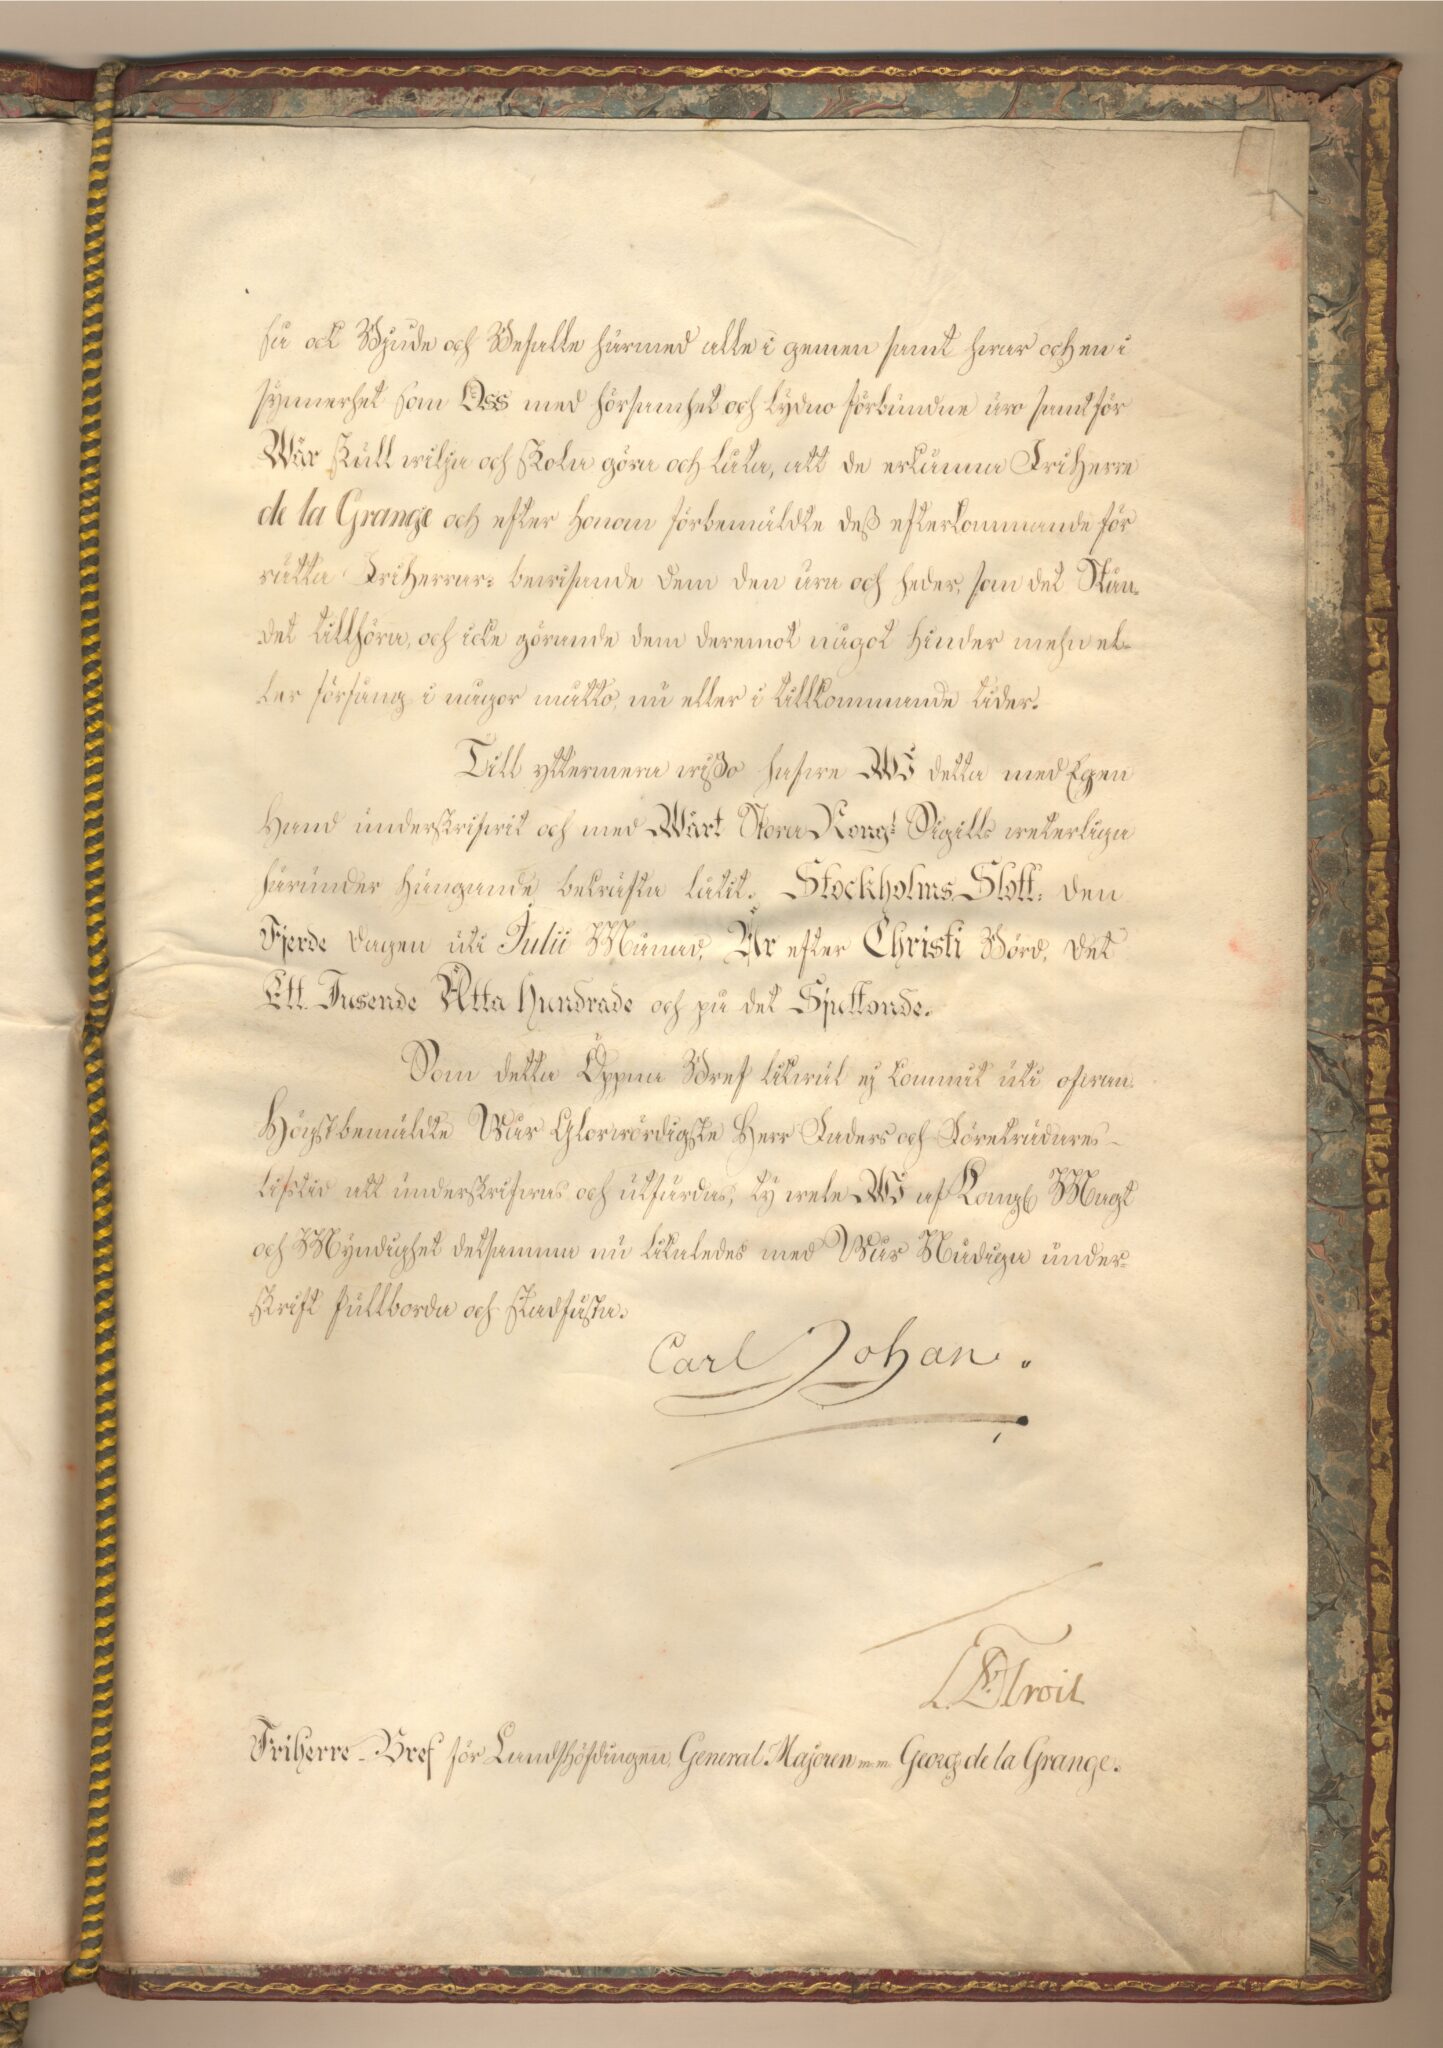 så ock Bjude och Befalle härmed alle i gemen samt hwar och en i
synnerhet som Oss med hörsamhet och lydno förbundne äro samt för
Wår skull wilja och skola göra och låta, att de erkänna Friherre
de la Grange och efter honom förbemäldte deß efterkommande för
rätta Friherrar: bewisande dem den ära och heder, som det Stån-
det tillhöra, och icke görande dem deremot något hinder mehn el-
ler förfång i någor måtto, nu eller i tillkommande tider.
Till yttermera wißo hafwe Wi detta med Egen
Hand underskrifwit och med Wårt Stora Kongl Sigill weterliga
härunder hängande bekräfta låtit. Stockholms Slott, den
Fjerde dagen uti Julii Månad, År efter Christi Börd, det
Ett Tusende Åtta Hundrade och på det Sjuttonde.
Som detta Öppna Bref likwäl ej kommit uti ofwan
Högstbemäldte Wår Glorwördigste Herr Faders och Företrädares
lifstid att underskrifwas och utfärdas, ty wele Wi af Kongl Magt
och Myndighet detsamma nu likaledes med Wår Nådiga under-
skrift fullborda och stadfästa.
Carl Johan.
L. v. Troil
Friherre-Bref för Landshöfdingen, General Majoren m.m. Georg de la Grange.